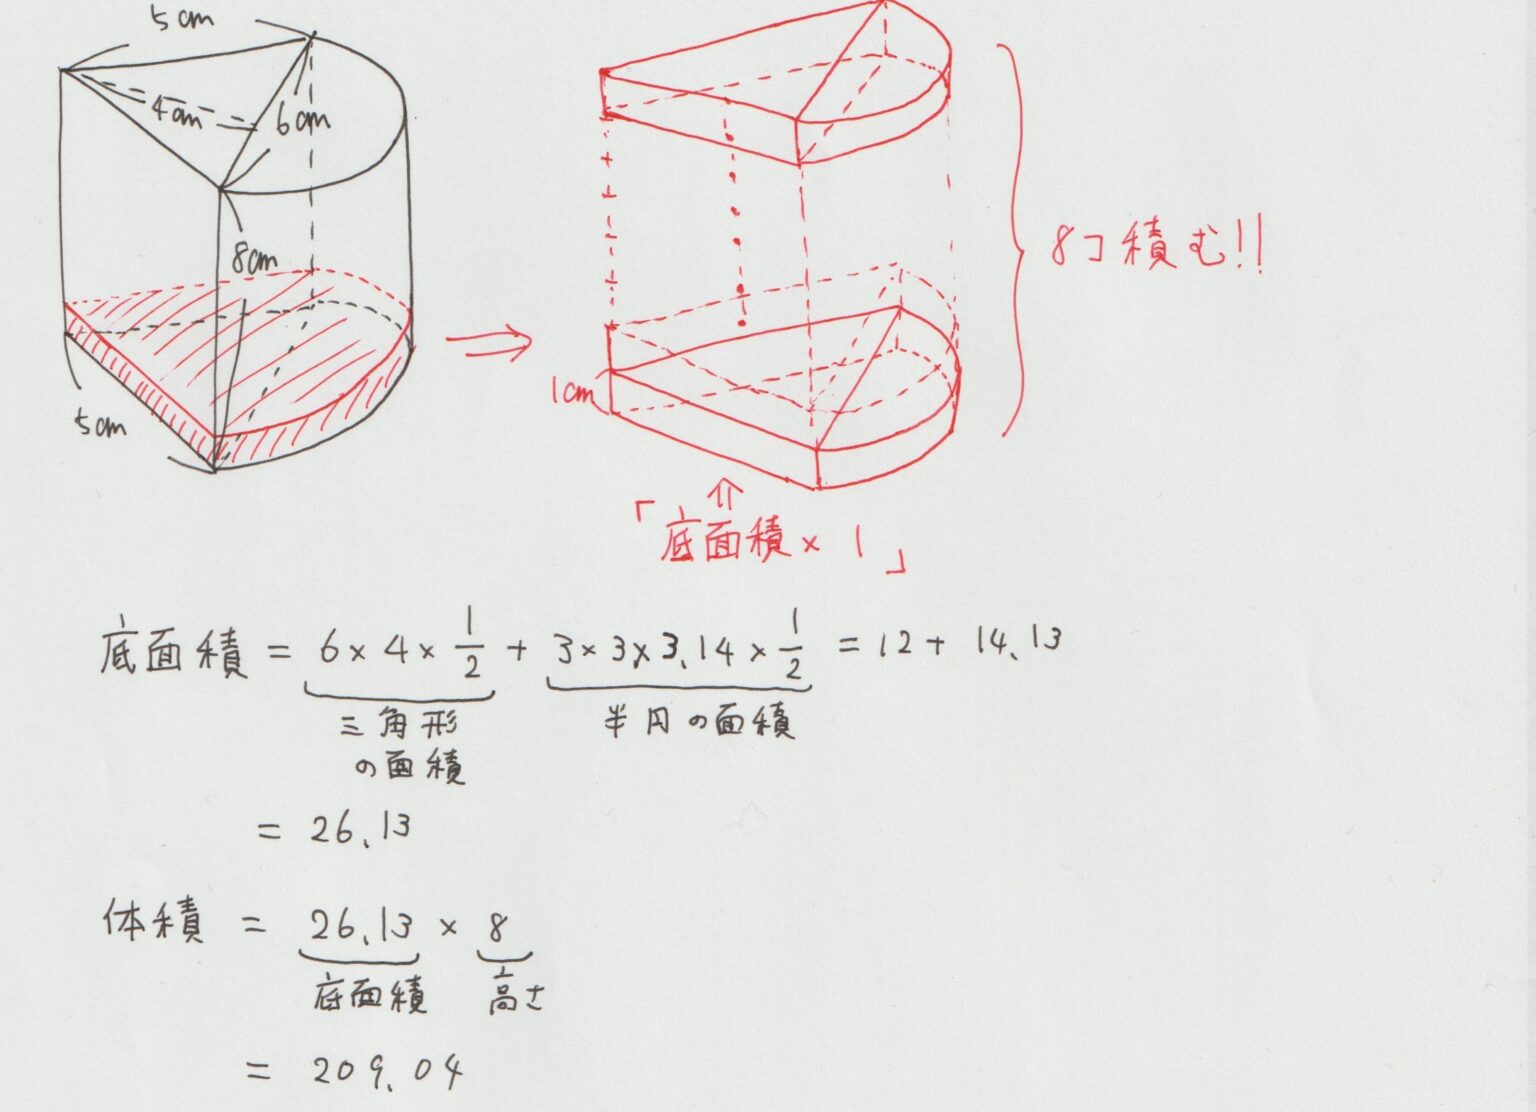 5cm
4cm
6cm
8cm
5cm
1cm
8コ積む!!
「底面積×1」
底面積 = 6×4×1/2 + 3×3×3.14×1/2 = 12+ 14.13
三角形
の面積
半円の面積
= 26.13
体積 = 26.13 × 8
底面積 高さ
= 209.04